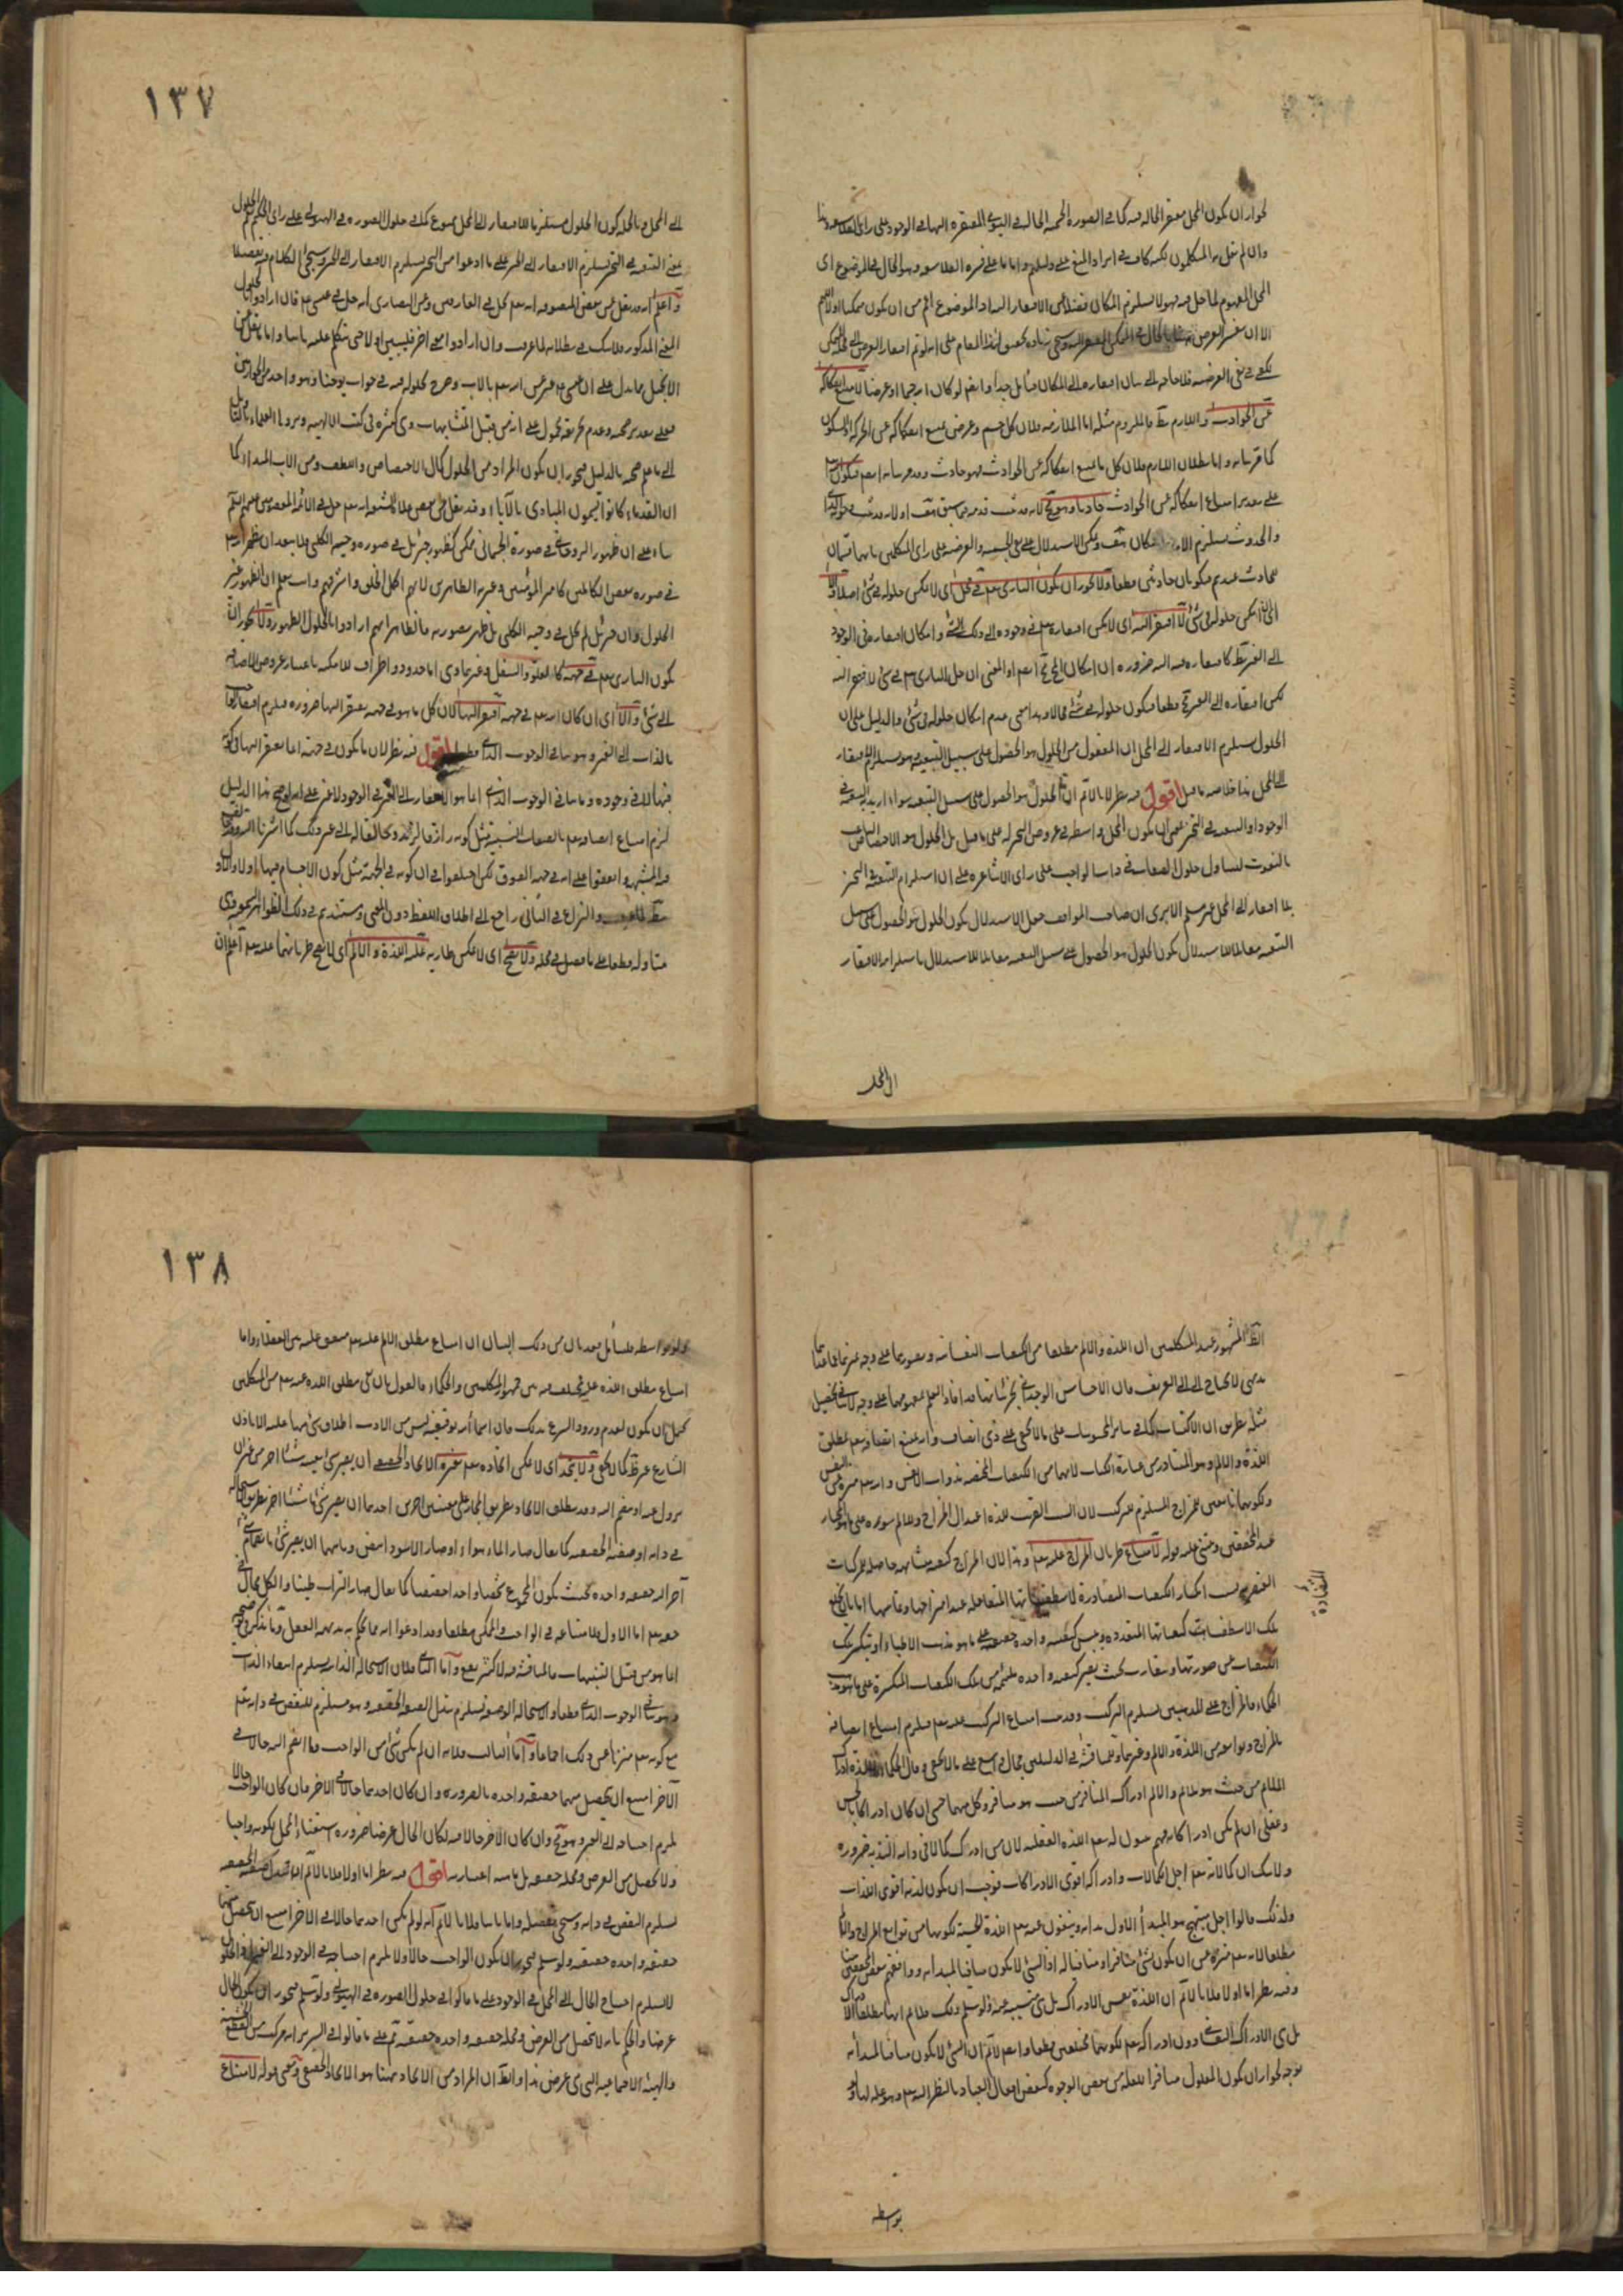 لجواز ان يكون المحل مفتقرا الى الحال فيه كما في الصورة الجسمية الحالة في الهيولى المفتقرة اليها في الوجود على راى الفلاسفة وهذا
وان لم يقل به المتكلمون لكنه كاف في ايراد المنع على دليلهم واما على الفلاسفة وهو الحال في الموضوع اى
المحل المقوم لما حل فيه فهو لا يستلزم المكان فضلا عن الافتقار اليه اذ الموضوع اعم من ان يكون ممكنا او لا اللهم
الا ان يفسر العرض
يكفى في نفى العرضية فلا حاجة الى بيان افتقاره الى المكان فتأمل جدا وايضا لو كان جسما او عرضا لامتنع انفكاكه
عن الحوادث واللازم بط فالملزوم مثله اما الملازمة فلان كل جسم وعرض يمتنع انفكاكه عن الحركة والسكون
كما قرر بيانه واما بطلان اللازم فلان كل ما يمتنع انفكاكه عن الحوادث فهو حادث وقد مر بيانه ايضا فيكون
على تقدير امتناع انفكاكه عن الحوادث حادثا وهو مح لانه قد ثبت قدمه
والحدوث يستلزم الامكان
حادث عندهم فيكونان حادثين قطعا ولا يجوز ان يكون البارى تع في محل اى لا يمكن حلوله في شئ اصلا والا
اى لو امكن حلوله في شئ لافتقر اليه اى لامكن افتقاره تع في وجوده الى ذلك الشئ وامكان افتقاره في الوجود
الى الغير بط كافتقاره فيه اليه ضرورة ان امكان المح مح ايضا او المعنى ان حل البارى تع في شئ لافتقر اليه
لكن افتقاره الى الغير مح قطعا فيكون حلوله في شئ محالا وهذا معنى عدم امكان حلوله في شئ والدليل على ان
الحلول يستلزم الافتقار الى المحل ان المعقول من الحلول هو الحصول على سبيل التبعية وهو يستلزم الافتقار
الى المحل هذا خلاصة ما قيل اقول فيه نظر لانا لانم ان الحلول هو الحصول على سبيل التبعية سواء اريد به التبعية في
الوجود او التبعية في التحيز بمعنى ان يكون المحل واسطة في عروض التحيز له على ما قيل بل الحلول هو الاختصاص الناعت
بالنعوت ليتناول حلول الصفات في ذات الواجب على راى الاشاعرة على ان استلزام التبعية في التحيز
بلا افتقار الى المحل غير مسلم الا يرى ان صاحب المواقف جعل الاستدلال بكون الحلول هو الحصول على سبيل
التبعية مقابلا للاستدلال بكون الحلول هو الحصول على سبيل التبعية مقابلا للاستدلال باستلزامه الافتقار
الى المحل
١٣٧
الى المحل وبالجملة كون الحلول مستلزما للافتقار الى المحل ممنوع كما في حلول الصورة في الهيولى على راى الحكيم
نعم التبعية في التحيز تستلزم الافتقار الى الغير على ما ادعوا من ان التحيز يستلزم الافتقار الى الحيز وسيجئ الكلام فيه مفصلا
واعلم انه قد نقل عن بعض المتصوفة انه تعم يحل في العارفين وعن النصارى انه حل في عيسى ع م فان ارادوا بالحلول
المعنى المذكور فلا شك في بطلانه لما عرفت وان ارادوا معنى اخر فليبين اولا حتى نتكلم عليه ثانيا واما ما نقل عن
الانجيل مما يدل على ان عيسى ع م عبر عن الله تعم بالاب وصرح بحلوله فيه في جواب يوحنا وهو واحد من الحواريين
فعلى تقدير صحته وعدم تحريفه محمول على انه من قبيل المتشابهات وهى كثيرة في كتب الالهية ويردها العلماء بالتأويل
الى ما علم صحته بالدليل فيجوز ان يكون المراد من الحلول كمال الاختصاص واللطف ومن الاب المبدأ كما
ان القدماء كانوا يسمون المبادى بالآباء وقد نقل عن بعض غلاة الشيعة انه تعم حل في الائمة المعصومين
بناء على ان ظهور الروحاني في صورة الجسماني ممكن كظهور جبرئيل في صورة دحية الكلبي فلا يبعد ان يظهر الله تعم
في صورة بعض الكاملين كامير المؤمنين وعترته الطاهرين لانهم اكمل الخلق واشرفهم وانت تعلم ان الظهور غير
الحلول وان جبرئيل لم يحل في دحية الكلبي بل ظهر بصورته فالظاهر انهم ارادوا بالحلول الظهور ولا يجوز ان
يكون البارى تعم في جهة كالعلو والسفل وغيرهما وهى اما حدود واطراف للامكنة باعتبار عروض الاضافة
الى شئ والا اى ان كان الله تعم في جهة افتقر اليها لان كل ما هو في جهة يفتقر اليها ضرورة فيلزم افتقار الواجب
بالذات الى الغير وهو ينافي الوجوب الذاتى قطعا اقول فيه نظر لان ما يكون في جهة انما يفتقر اليها في كونه
فيها لا في وجوده وما ينافي الوجوب الذاتى انما هو الافتقار الى الغير في الوجود لا غير على انه لو صح هذا الدليل
لزم امتناع اتصافه تعم بالصفات النسبية مثل كونه رازقا لزيد وخالقا له الى غير ذلك كما اشرنا اليه
المشبهة واتفقوا على انه في جهة الفوق لكن اختلفوا في ان كونه في الجهة مثل كون الاجسام فيها اولا والاول
بط لما عرفت والنزاع في الثانى راجع الى اطلاق اللفظ دون المعنى ومستندهم في ذلك الظواهر السمعية وهى
متأولة قطعا على ما فصل في محله ولا يصح اى لا يمكن طريان عليه اللذة والالم اى لا يصح طريانهما عليه تعم اعلم ان
المشهور عند المتكلمين ان اللذة والالم مطلقا من الكيفيات النفسانية وتصورهما على وجه يميزهما عما عداهما
بديهى لا يحتاج الى التعريف فان الاحساس الوجدانى بجزئياتهما قد افاد العلم بمفهومهما على وجه لا يتأتى تحصيل
مثله بطريق الاكتساب كما في سائر المحسوسات على ما لا يخفى على ذى انصاف واذ يمتنع اتصافه تعم بمطلق
اللذة والالم وهو المتبادر من عبارة الكتاب لانهما من الكيفيات المختصة بذوات الانفس والله تعم منزه عن النفس
ولكونهما تابعين للمزاج المستلزم للتركيب لان السبب القريب للذة اعتدال المزاج وللالم سوءه على ما هو المختار
عند المحققين ومبنى عليه قوله لامتناع طريان المزاج عليه تعم وهذا لان المزاج كيفية متشابهة حاصلة للمركبات
العنصرية بسبب انكسار الكيفيات المتضادة لاسطقساتها المتفاعلة عند امتزاجها وتماسها اما بان يخلع
تلك الاسطقسات كيفياتها المتعددة ويلبس كيفية واحدة حقيقية على ما هو مذهب الاطباء او تنكسر تلك
الكيفيات عن صورتها وتتقارب بحيث يصير كيفية واحدة ملتئمة من تلك الكيفيات المنكسرة على ما هو مذهب
الحكماء فالمزاج على المذهبين يستلزم التركيب وقد ثبت امتناع التركيب عليه تعم فيلزم امتناع اتصافه
بالمزاج وتوابعه من اللذة والالم وغيرهما وللمناقشة في الدليلين مجال واسع على ما لا يخفى وقال الحكماء اللذة ادراك
الملائم من حيث هو ملائم والالم ادراك المنافر من حيث هو منافر وكل منهما حسى ان كان ادراكا بالحس
وعقلى ان لم يكن ادراكا به فهم يثبتون له تعم اللذة العقلية لان من ادرك كمالا في ذاته التذ به ضرورة
ولا شك ان كمالاته تعم اجل الكمالات وادراكه اقوى الادراكات فوجب ان يكون لذته اقوى اللذات
ولذلك قالوا اجل مبتهج هو المبدأ الاول بذاته وينفون عنه تعم اللذة الحسية لكونها من توابع المزاج والالم
مطلقا لانه تعم منزه عن ان يكون شئ منافرا ومنافيا له اذ الشئ لا يكون منافيا لمبدأه ووافقهم بعض المحققين
وفيه نظر اما اولا فلانا لانم ان اللذة نفس الادراك بل هى مسببة عنه ولو سلم ذلك فلانم انها مطلق الادراك
بل هى الادراك النفساني دون ادراكه تعم لكونهما مختلفين قطعا وايضا لانم ان الشئ لا يكون منافيا لمبدأه
لجواز ان يكون المعلول منافرا للعلة من بعض الوجوه كبعض افعال العباد بالنظر اليه تعم وهو علة لها
المتضادة
بواسطة
١٣٨
ولو بواسطة فليتأمل فقد بان من ذلك البيان ان امتناع مطلق الالم عليه تعم متفق عليه بين العقلاء واما
امتناع مطلق اللذة عليه فمختلف فيه بين جمهور المتكلمين والحكماء فالقول بان نفى مطلق اللذة عنه تعم من المتكلمين
يحتمل ان يكون لعدم ورود الشرع بذلك فان اسماءه توقيفية ليس من الادب اطلاق شئ منها عليه الا باذن
الشارع غير ظ كما لا يخفى ولا يتحد اى لا يمكن اتحاده تعم بغيره الاتحاد الحقيقى ان يصير شئ بعينه شيئا اخر من غير ان
يزول عنه او ينضم اليه وقد يطلق الاتحاد بطريق المجاز على معنيين اخرين احدهما ان يصير شئ ما شيئا اخر بطريق الاستحالة
في ذاته او صفته الحقيقية كما يقال صار الماء هواء وصار الاسود ابيض وثانيهما ان يصير شئ بانضمام شئ
آخر اليه حقيقة واحدة بحيث يكون المجموع شخصا واحدا حقيقيا كما يقال صار التراب طينا والكل محال في
حقه تعم اما الاول فلامتناعه في الواجب والممكن مطلقا وقد ادعوا انه مما يحكم به بديهة العقل وما يذكر في توضيحه
انما هو من قبيل التنبيهات فالمناقشة فيه لا كثير نفع واما الثانى فلان الاستحالة الذاتية يستلزم انتفاء الذات
وهو ينافي الوجوب الذاتى قطعا والاستحالة الوصفية يستلزم تبدل الصفة الحقيقية وهو مستلزم للنقص في ذاته تعم
مع كونه تعم منزها عن ذلك اجماعا واما الثالث فلانه ان لم يكن شئ من الواجب وما انضم اليه حالا في
الآخر امتنع ان يحصل منهما حقيقة واحدة بالضرورة وان كان احدهما حالا في الاخر فان كان الواجب حالا
يلزم احتياجه الى الغير وهو مح وان كان الاخر حالا فيه لكان الحال عرضا ضرورة استغناء المحل لكونه واجبا
ولا يحصل من العرض ومحله حقيقة بل ماهية اعتبارية اقول فيه نظر اما اولا فلانا لانم ان تبدل الصفة الحقيقية
يستلزم النقص في ذاته وسيجئ تفصيله واما ثانيا فلانا لانم انه لو لم يكن احدهما حالا في الاخر امتنع ان يحصل منهما
حقيقة واحدة حقيقية ولو سلم فيجوز ان يكون الواجب حالا ولا يلزم احتياجه في الوجود الى الغير
لا يستلزم احتياج الحال الى المحل في الوجود على ما قالوا في حلول الصورة في الهيولى ولو سلم فيجوز ان يكون الحال
عرضا والحكم بانه لا يحصل من العرض ومحله حقيقة واحدة حقيقية ثم على ما قالوا في السرير انه مركب من القطع الخشبية
والهيئة الاجتماعية التى هى عرض هذا والظ ان المراد من الاتحاد ههنا هو الاتحاد الحقيقى ومعنى قوله لامتناع